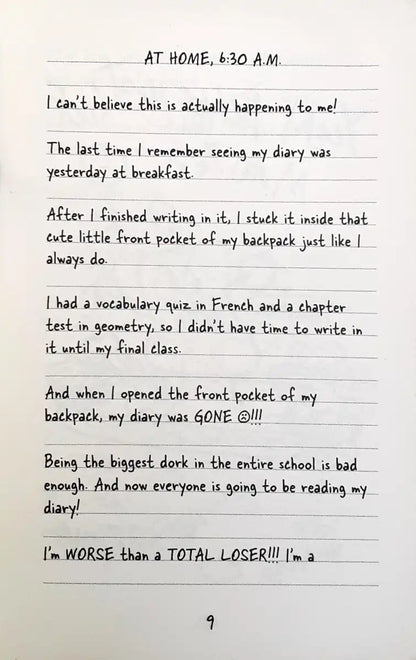 AT HOME, 6:30 A.M.
I can't believe this is actually happening to me!
The last time I remember seeing my diary was
yesterday at breakfast.
After I finished writing in it, I stuck it inside that
cute little front pocket of my backpack just like I
always do.
I had a vocabulary quiz in French and a chapter
test in geometry, so I didn't have time to write in
it until my final class.
And when I opened the front pocket of my
backpack, my diary was GONE ☹!!!
Being the biggest dork in the entire school is bad
enough. And now everyone is going to be reading my
diary!
I'm WORSE than a TOTAL LOSER!!! I'm a
9